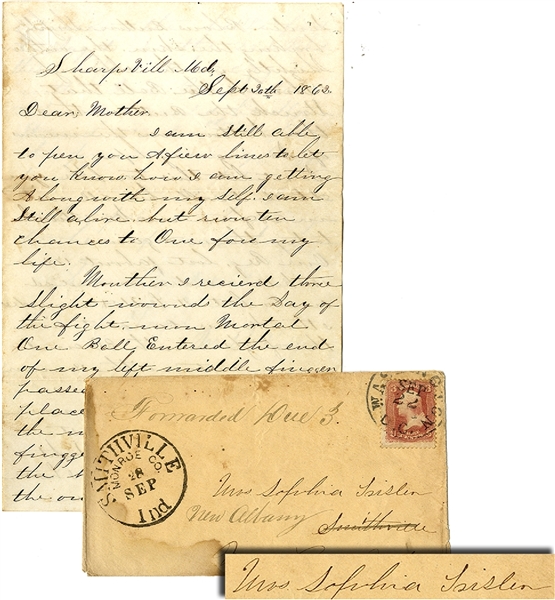 Sharpsvill Md,
Sept 20th 1862
Dear, Mother
I am still able
to pen you A fiew lines to let
you know how I am getting
Along with my self. I am
Still alive. but run ten
chances to One fore my
life.
Mouther I recierd three
slight wounds the Day of
the fight. non Mortal
One Ball Entered the end
of my left middle finger
passed
place
the
fingger
the
the
Forwarded Due 3.
WASHINGTON
SEP
D.C.
SMITHVILLE
MONROE CO
28
SEP
Ind
Mrs Sophia Isislen
New Albany Smithville
Mrs Sophia Isislen